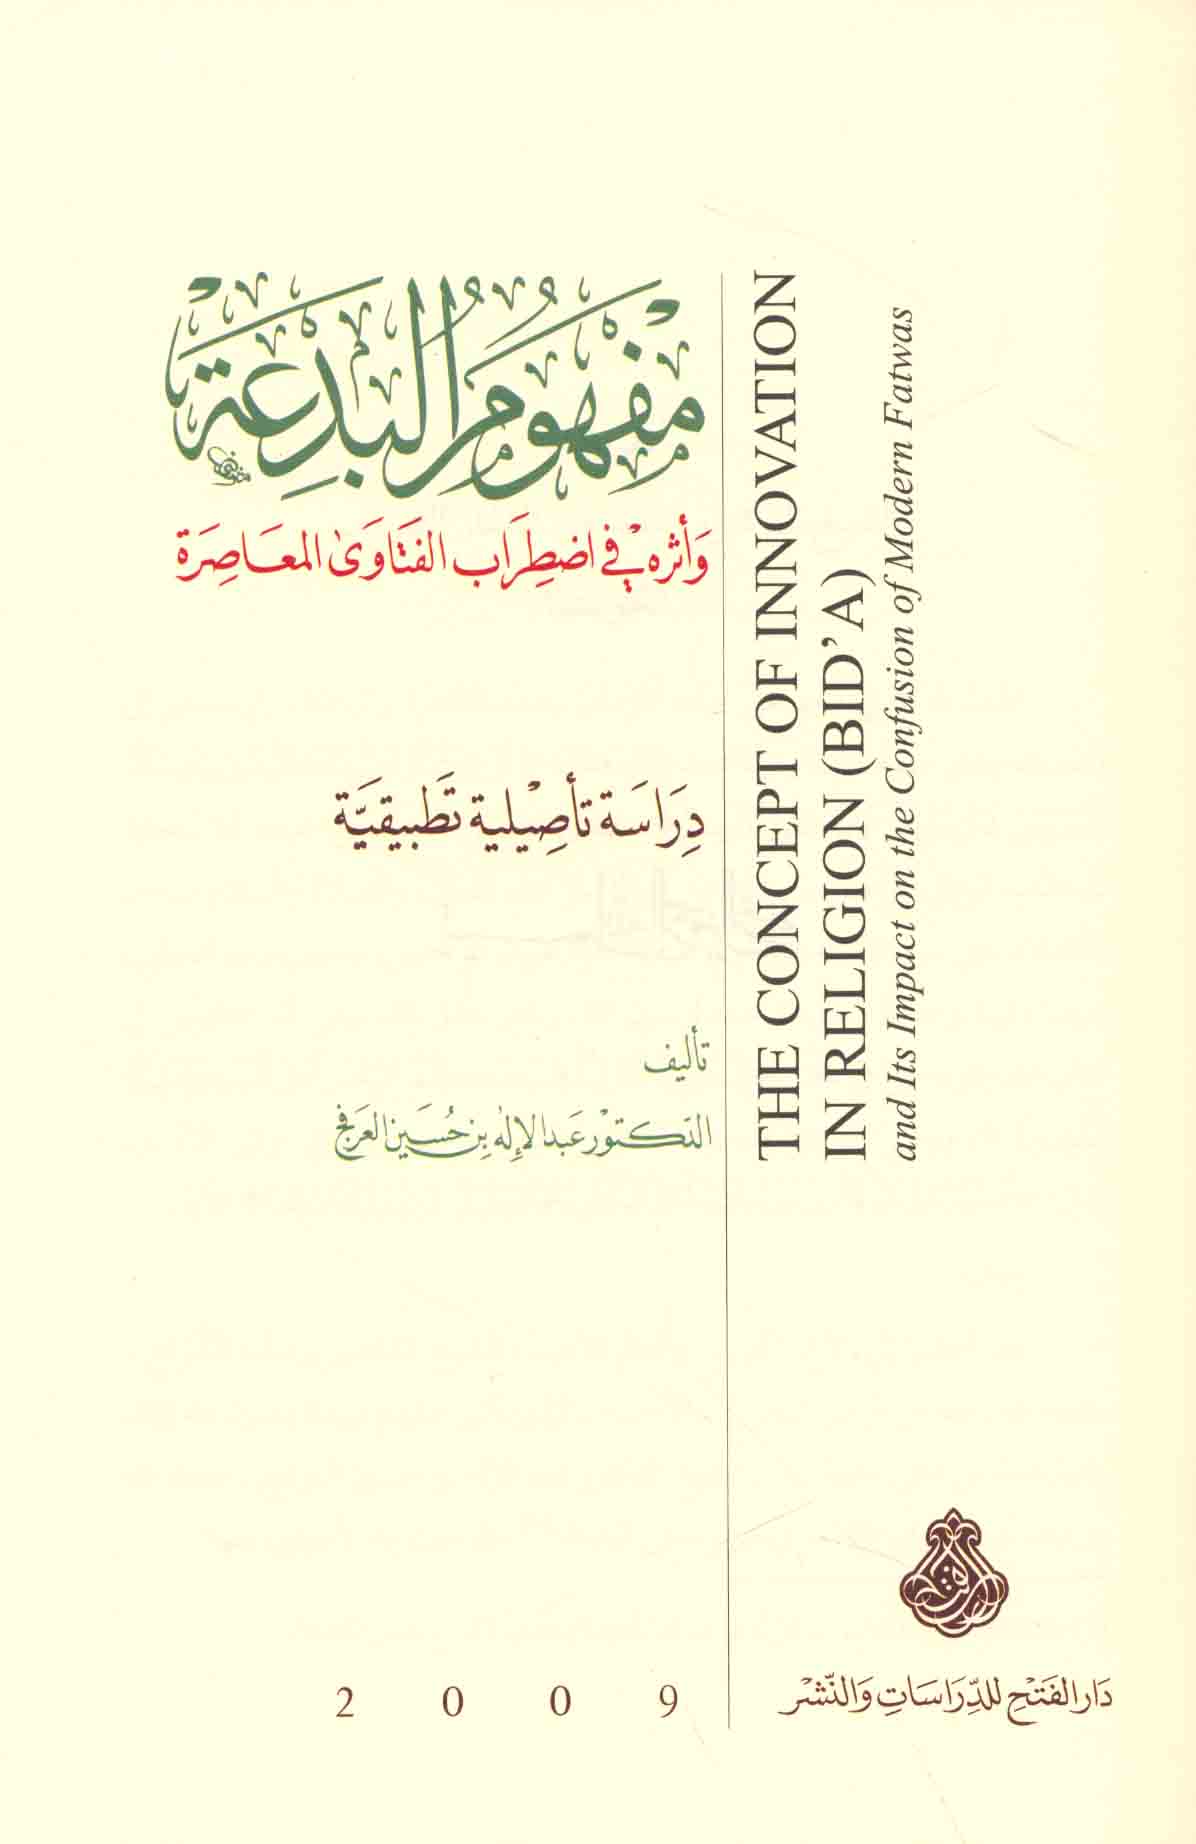 مَفْهُومُ البِدْعَة
وَأثره في اضطِرَاب الفتَاوىٰ المعَاصِرَة
دِرَاسَة تأصِيلية تَطبيقيَّة
تأليف
الدّكتوْر عَبد الإلٰه بن حُسَين العَرفج
2009
THE CONCEPT OF INNOVATION
IN RELIGION (BID'A)
and Its Impact on the Confusion of Modern Fatwas
دَار الفَتْح للدِّرَاسَاتِ وَالنَّشْر